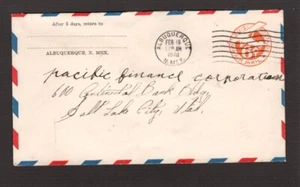 After 5 days, return to
ALBUQUERQUE, N. MEX.
ALBUQUERQUE
FEB 18
N. MEX.
pacific finance corporation
Continental Bank Bldg,
Salt Lake City, Utah.